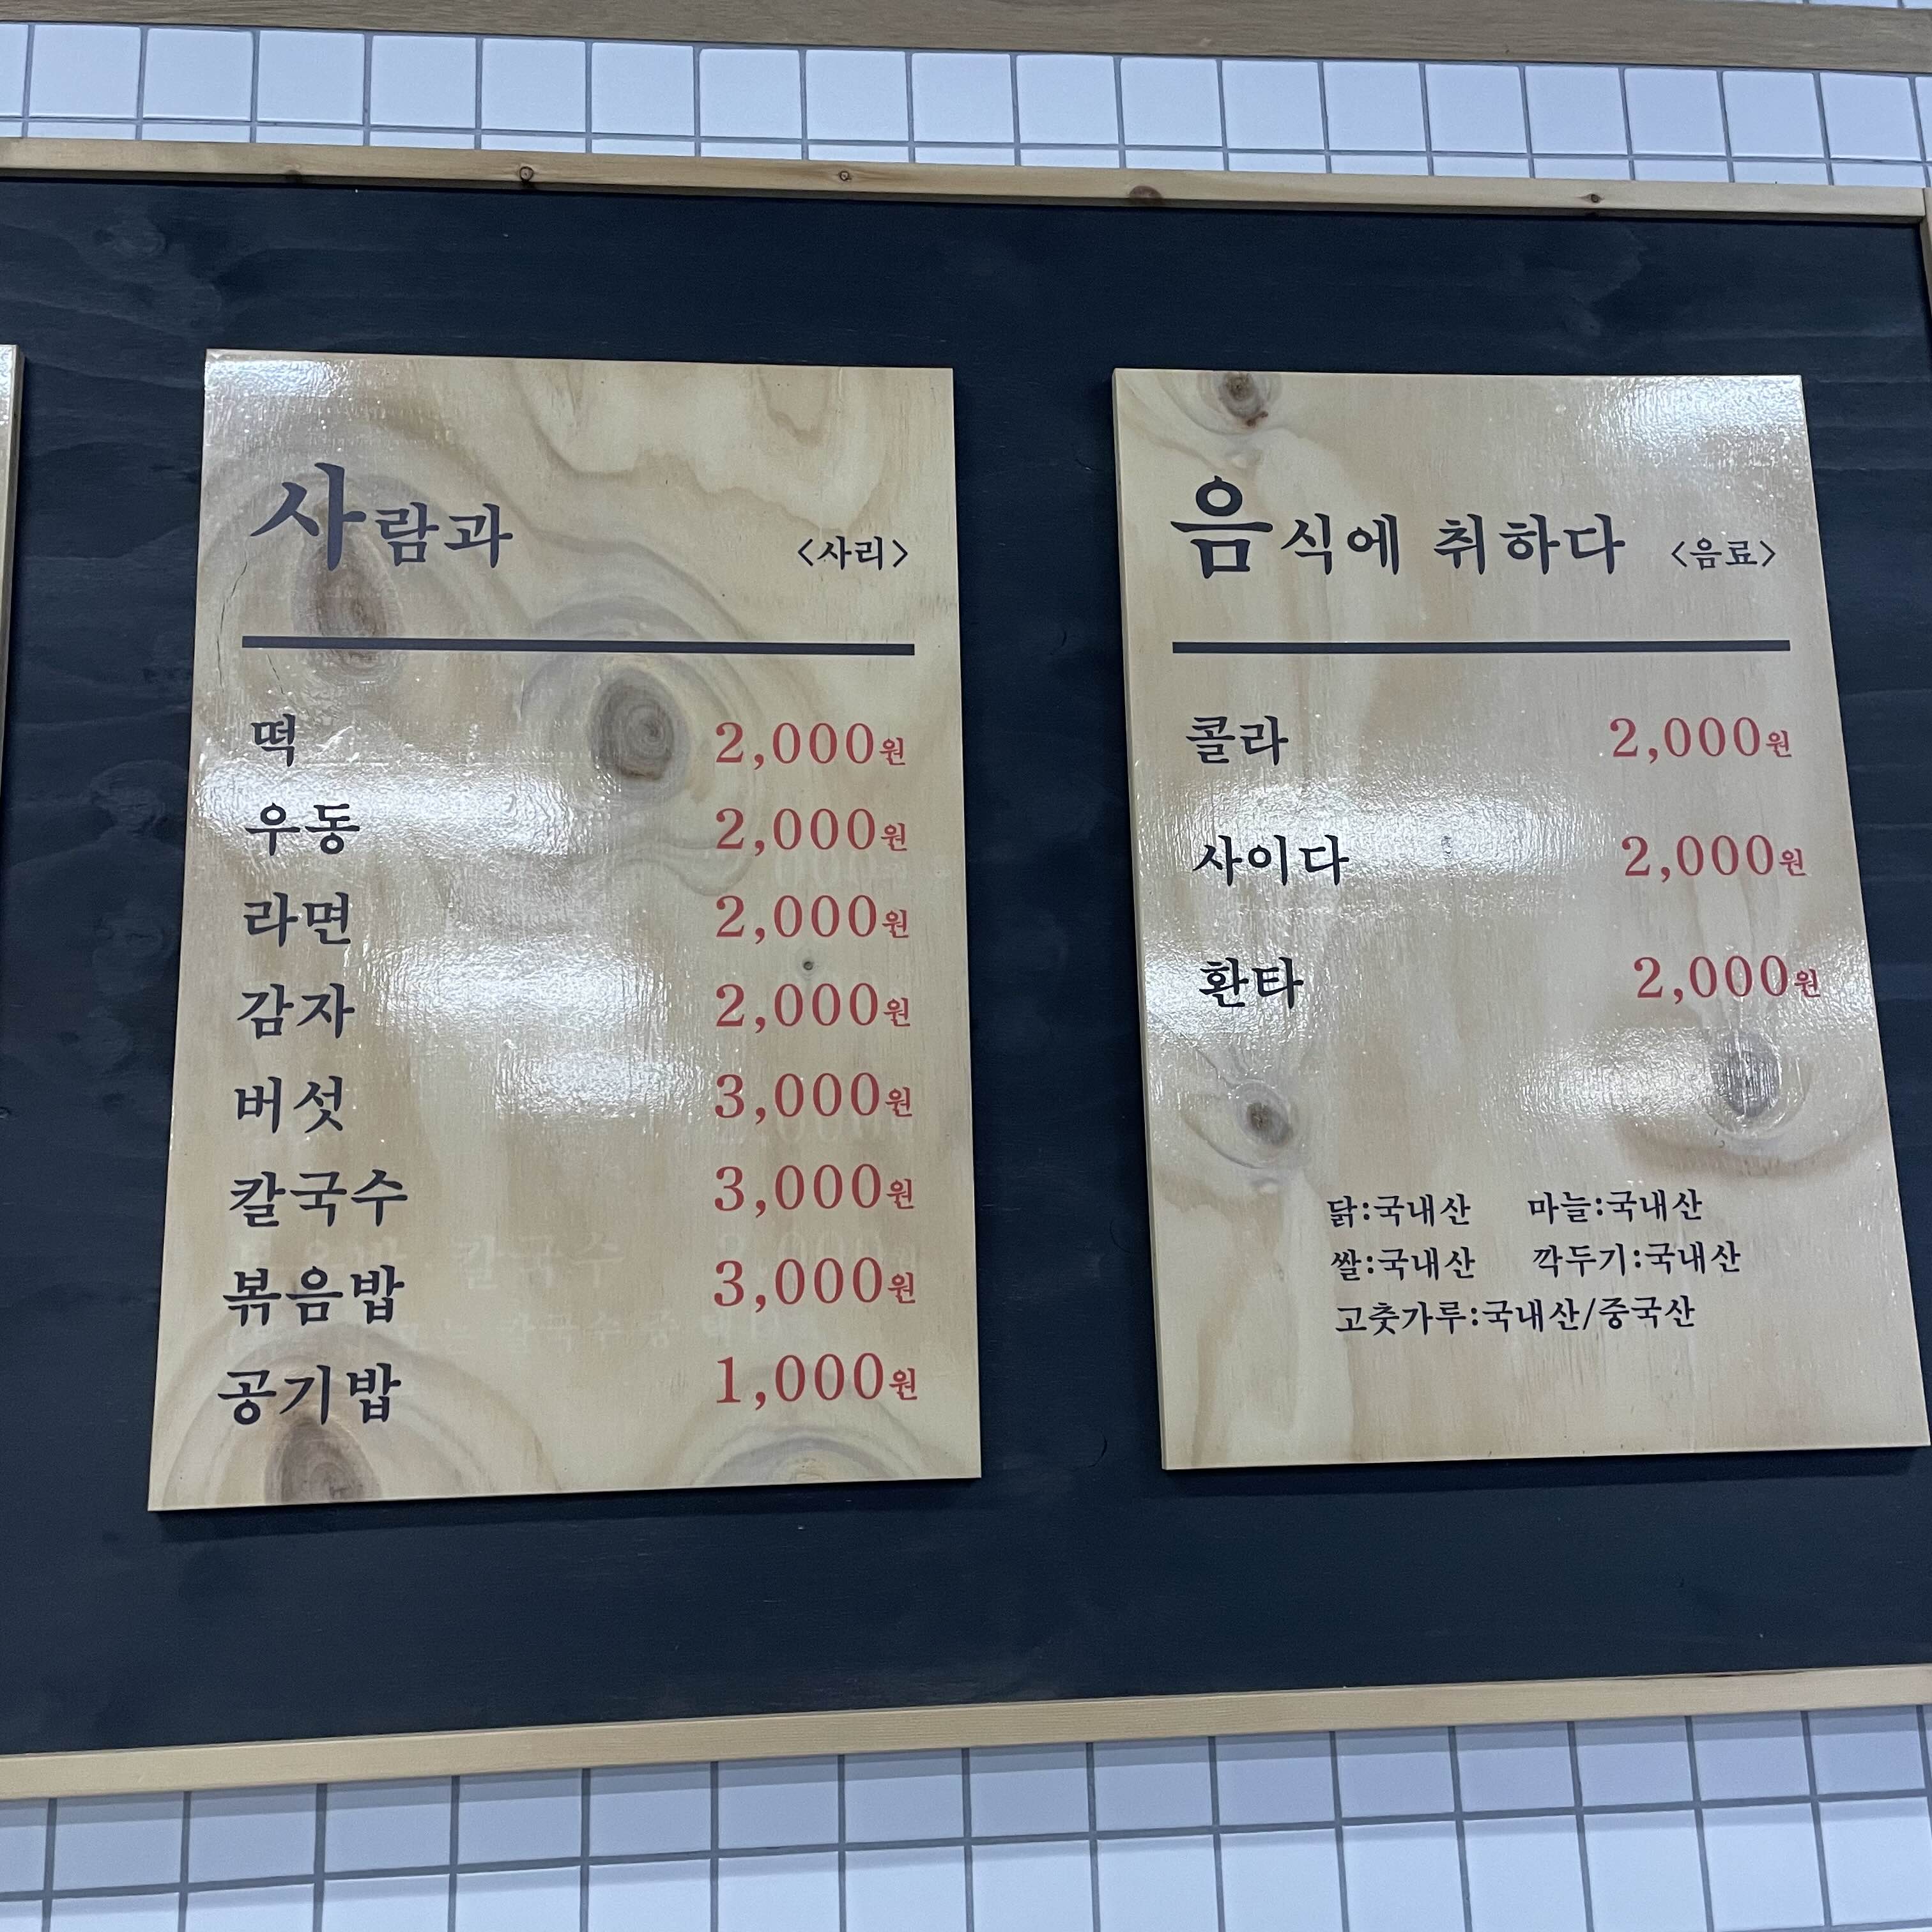 사람과 <사리>
떡 2,000원
우동 2,000원
라면 2,000원
감자 2,000원
버섯 3,000원
칼국수 3,000원
볶음밥 3,000원
공기밥 1,000원
음식에 취하다 <음료>
콜라 2,000원
사이다 2,000원
환타 2,000원
닭:국내산 마늘:국내산
쌀:국내산 깍두기:국내산
고춧가루:국내산/중국산